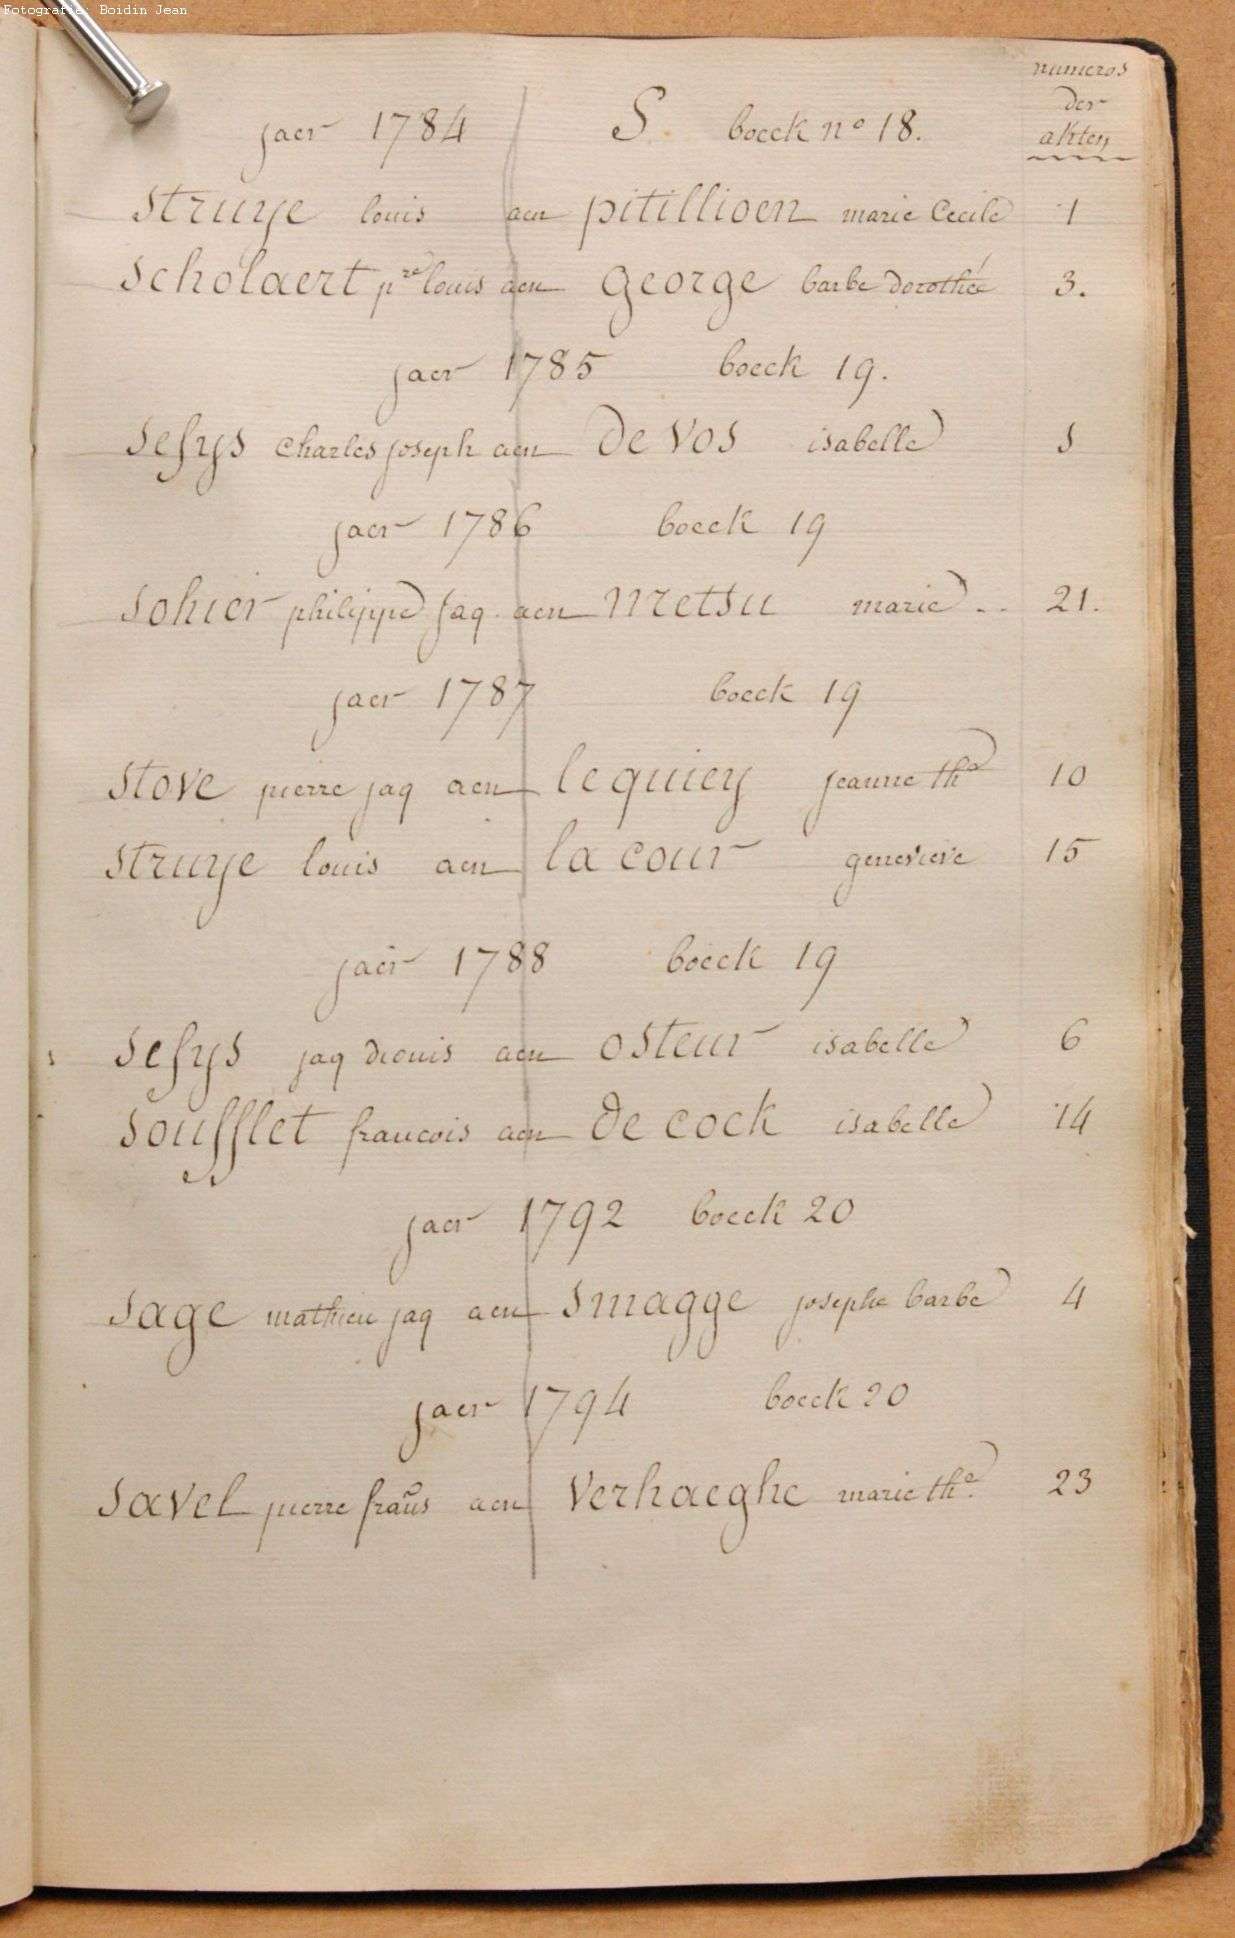 Fotografie: Boidin Jean
numeros
der
akten
jaer 1784 S. boeck nº 18.
struye louis aen pitillioen marie Cecile 1
scholaert p^re louis aen george barbe dorothée 3.
jaer 1785 boeck 19.
sesys charles joseph aen De Vos isabelle
jaer 1786 boeck 19
sohier philippe jaq. aen metsu marie .. 21.
jaer 1787 boeck 19
stove pierre jaq aen lequiey jeanne th^e 10
struye louis aen la cour genevieve 15
jaer 1788 boeck 19
sesys jaq dionis aen osteur isabelle 6
soufflet francois aen De cock isabelle 14
jaer 1792 boeck 20
sage mathieu jaq aen smagge josephe barbe 4
jaer 1794 boeck 20
savel pierre frañs aen Verhaeghe marie th^e. 23